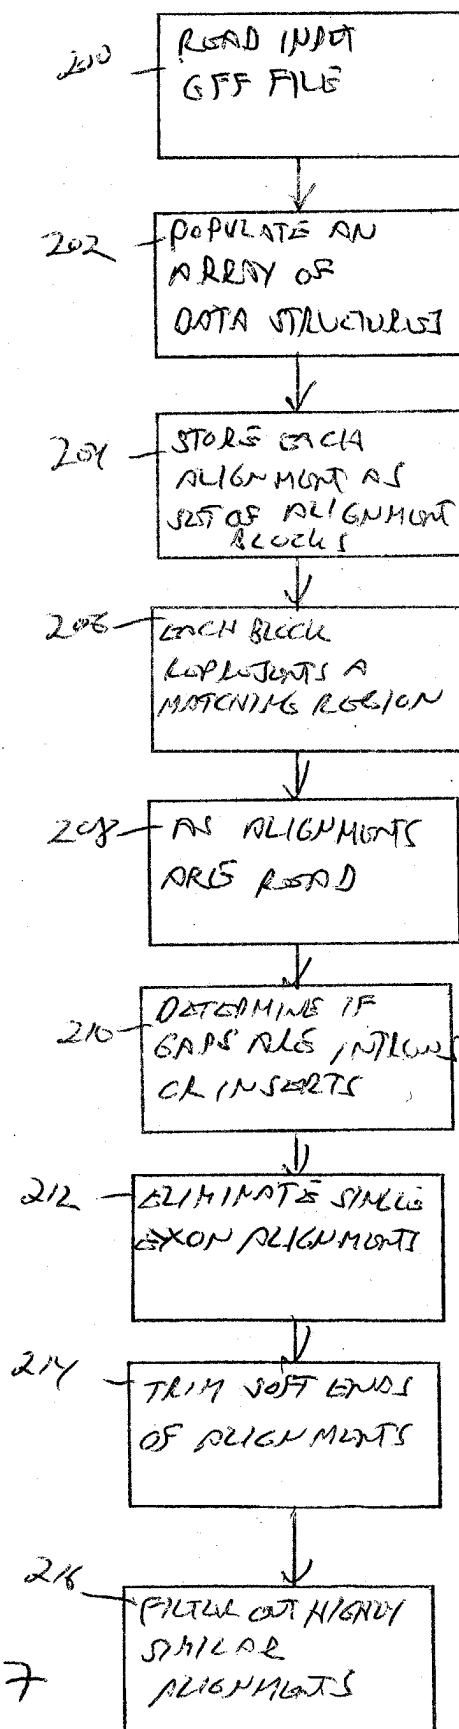 200
READ INPUT
GFF FILE
202
POPULATE AN
ARRAY OF
DATA STRUCTURES
204
STORE EACH
ALIGNMENT AS
SET OF ALIGNMENT
BLOCKS
206
EACH BLOCK
REPRESENTS A
MATCHING REGION
208
AS ALIGNMENTS
ARE READ
210
DETERMINE IF
GAPS ARE INTRONS
OR INSERTS
212
ELIMINATE SINGLE
EXON ALIGNMENTS
214
TRIM SOFT ENDS
OF ALIGNMENTS
216
FILTER OUT HIGHLY
SIMILAR
ALIGNMENTS
7